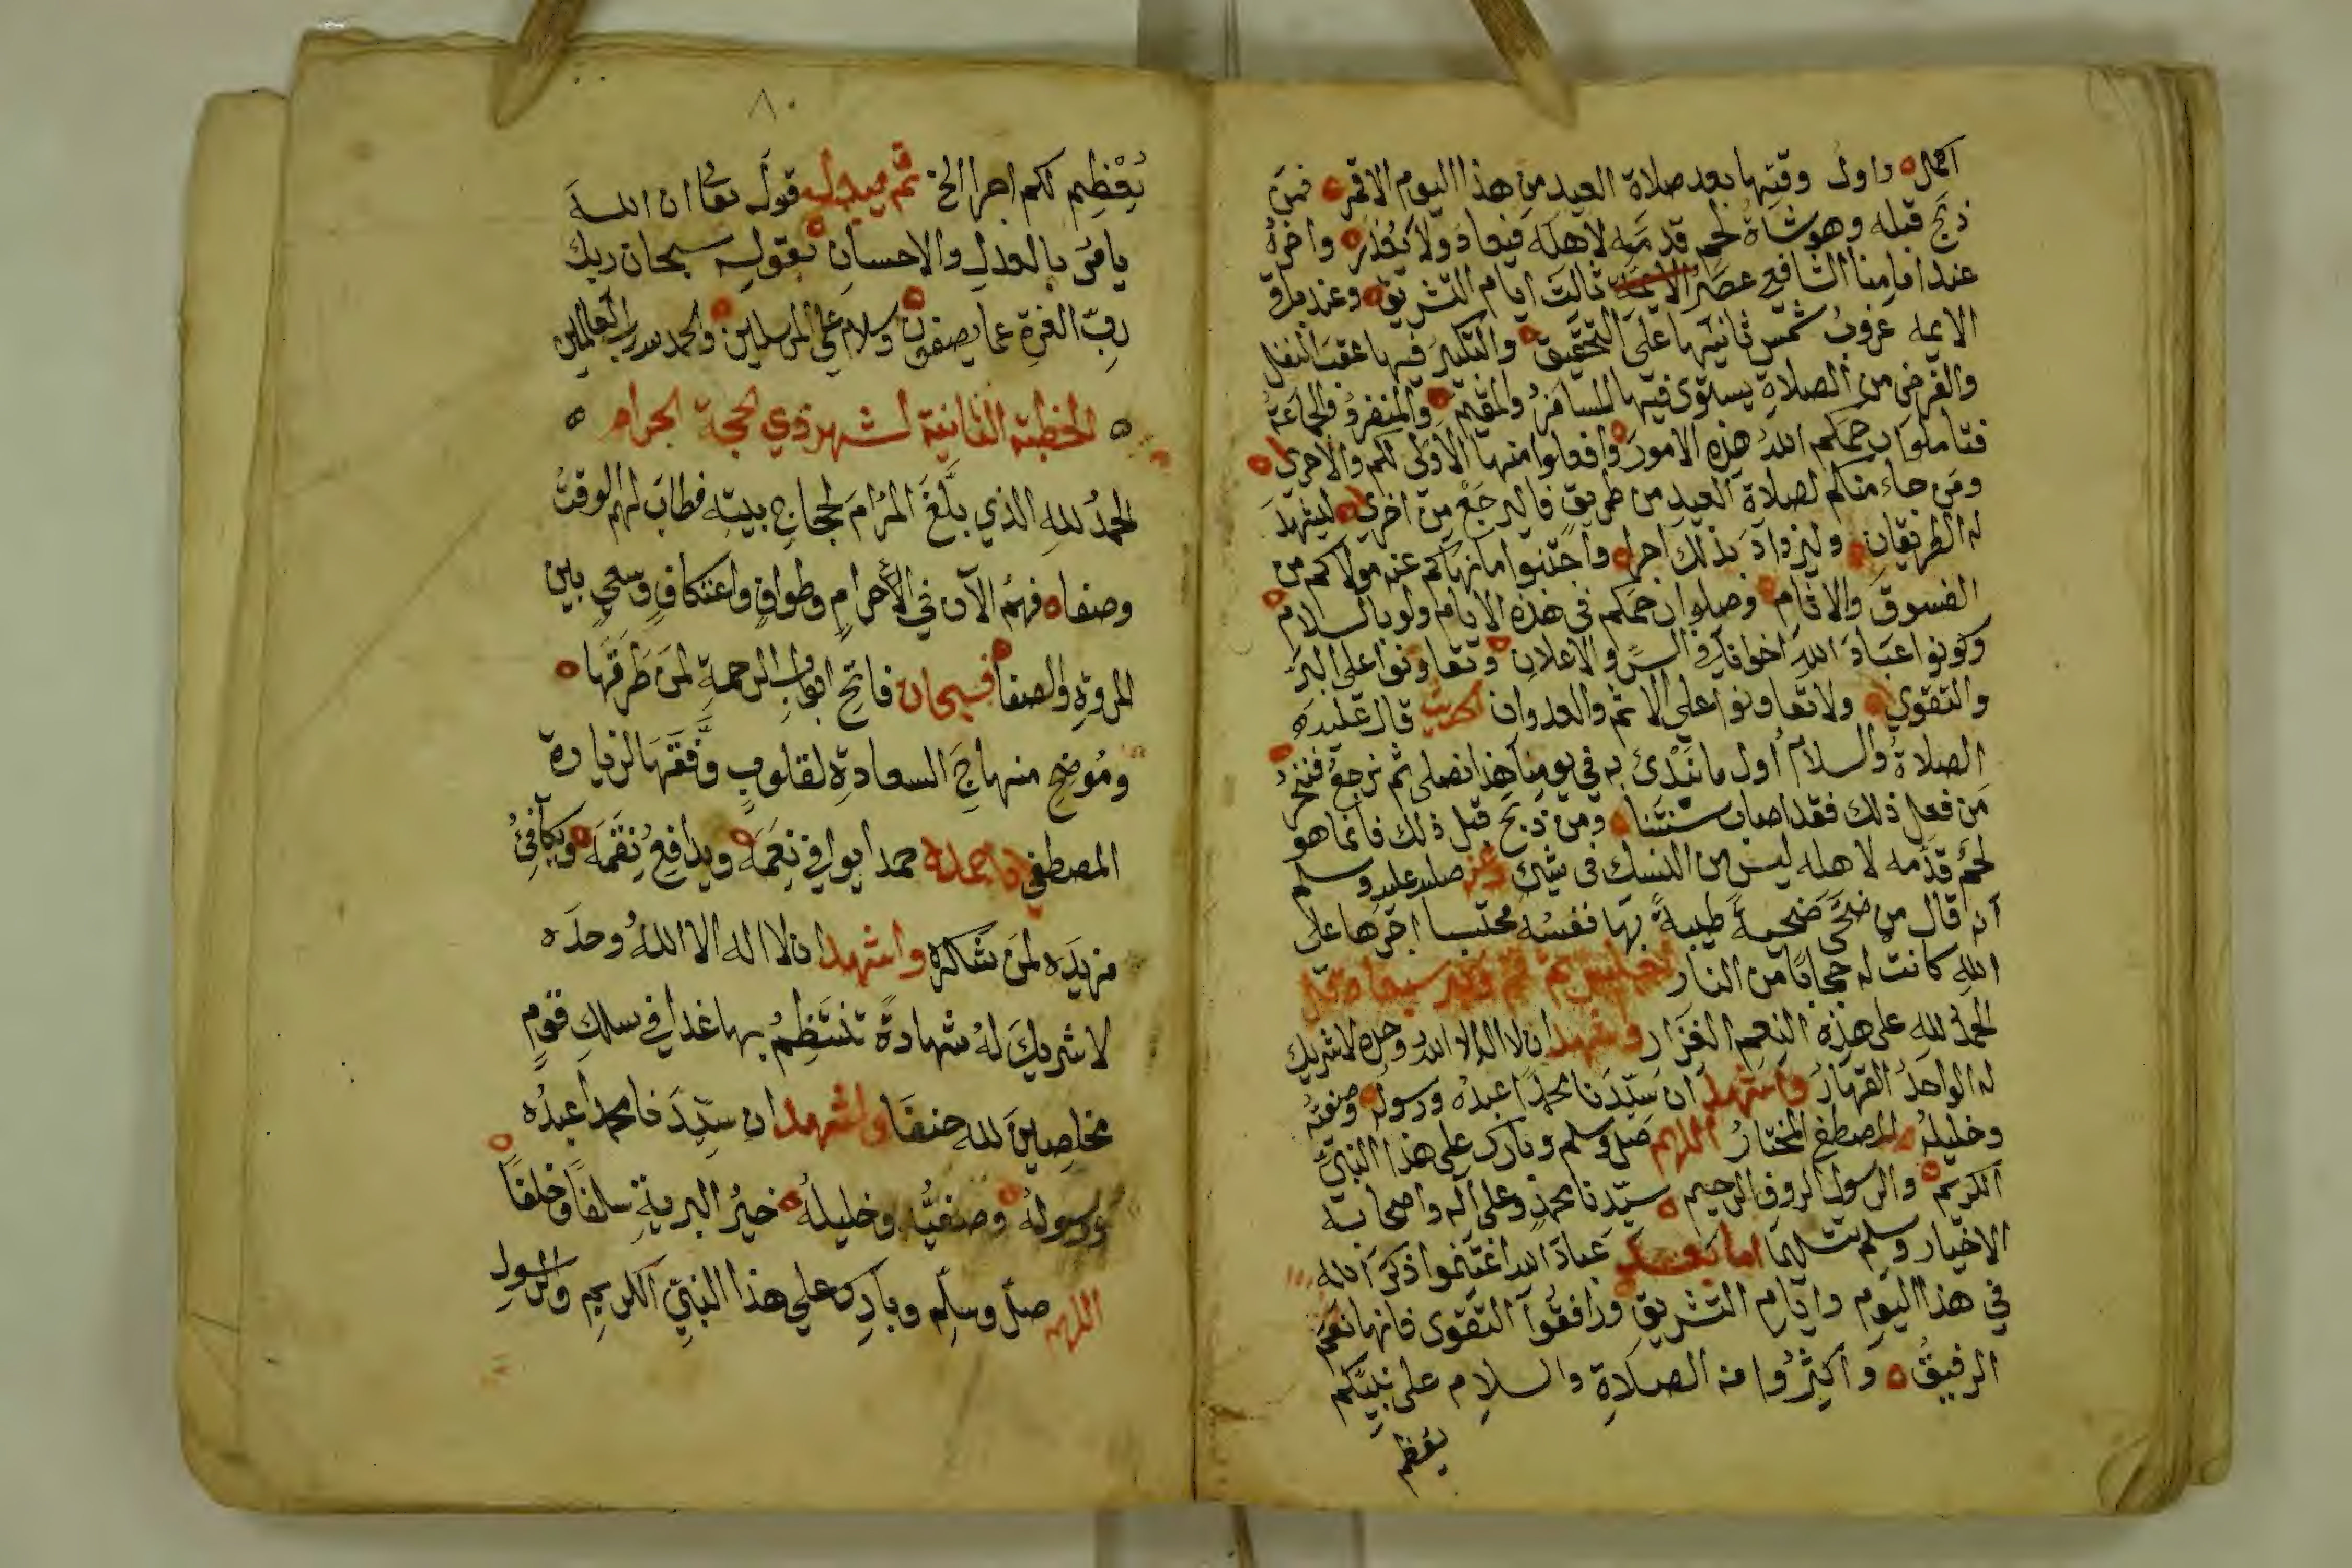 اكمال ه واول وقتها بعد صلاة العيد من هذا اليوم الاقمر ه فمن
ذبح قبله وهو شاة لحم قدمه لاهله فيعاد ولا يعذر ه واخره
عند امامنا الشافعي عصر ثالث ايام التشريق ه وعند باقي
الايمه غروب شمس ثانيها على التحقيق ه والتكبير فيها عقب النفل
والفرض من الصلاة يستوى فيها المسافر والمقيم ه والمنفرد والجماعة
فتاملوا رحمكم الله هذه الامور ه وافعلوا منها الاولى لكم والاحرى ه
ومن جاء منكم لصلاة العيد من طريق فاليرجع من اخرى ه ليشهد
له الطريقان ه وليزداد بذلك اجرا ه واجتنبوا ما نهاكم عنه مولاكم من
الفسوق والاثام ه وصلوا ارحامكم في هذه الايام ولو بالسلام ه
وكونوا عباد الله اخوانا في السر والاعلان ه وتعاونوا على البر
والتقوى ه ولا تعاونوا على الاثم والعدوان الحديث قال عليه
الصلاة والسلام اول ما نبدئ به في يومنا هذا نصلى ثم نرجع فننحر ه
من فعل ذلك فقد اصاب سنتنا ه ومن ذبح قبل ذلك فانما هو
لحم قدمه لاهله ليس من النسك في شيئ وعنه صلى عليه وسلم
انه قال من ضحى ضحية طيبة بها نفسه محتسبا اجرها على
الله كانت له حجابا من النار ثم يجلس ثم قم وكبر سبعا وقل
الحمد لله على هذه النعم الغزار واشهد ان لا اله الا الله وحده لا شريك
له الواحد القهار واشهد ان سيدنا محمدا عبده ورسوله ه وصفيه
وخليله ه المصطفى المختار اللهم صل وسلم وبارك على هذا النبي
الكريم ه والرسول الروف الرحيم ه سيدنا محمد وعلى اله واصحابه
الاخيار وسلم تسليما اما بعد عباد الله اغتنموا ذكر الله
في هذا اليوم وايام التشريق ورافقوا التقوى فانها نعم
الرفيق ه واكثروا من الصلاة والسلام على نبيكم
يعظم
٨٠
يعظم لكم اجرا الخ ثم قول تعا ان الله
يامر بالعدل والاحسان ه بقوله سبحان ربك
رب العزة عما يصفون ه وسلام على المرسلين ه والحمد لله رب العالمين
ه الخطبة الثانية لشهر ذي الحجة الحرام ه
الحمد لله الذي بلغ المرام لحجاج بيته فطاب لهم الوقت
وصفا ه فهم الآن في الأحرام وطواف واعتكاف وسعي بين
المروة والصفا ه فسبحان فاتح ابواب الرحمة لمن طرقها ه
وموضح منهاج السعادة لقلوب وفقها لزيارة
المصطفى احمده حمدا يوافي نعمه ه ويدافع نقمه ه ويكافئ
مزيده لمن شاكره واشهد ان لا اله الا الله وحده
لا شريك له شهادة تنتظم بها غدا في سلك قوم
مخلصين لله حنفا واشهد ان سيدنا محمدا عبده
ورسوله ه وصفيه وخليله ه خير البرية سلفا وخلفا ه
اللهم صل وسلم وبارك على هذا النبي الكريم والرسول